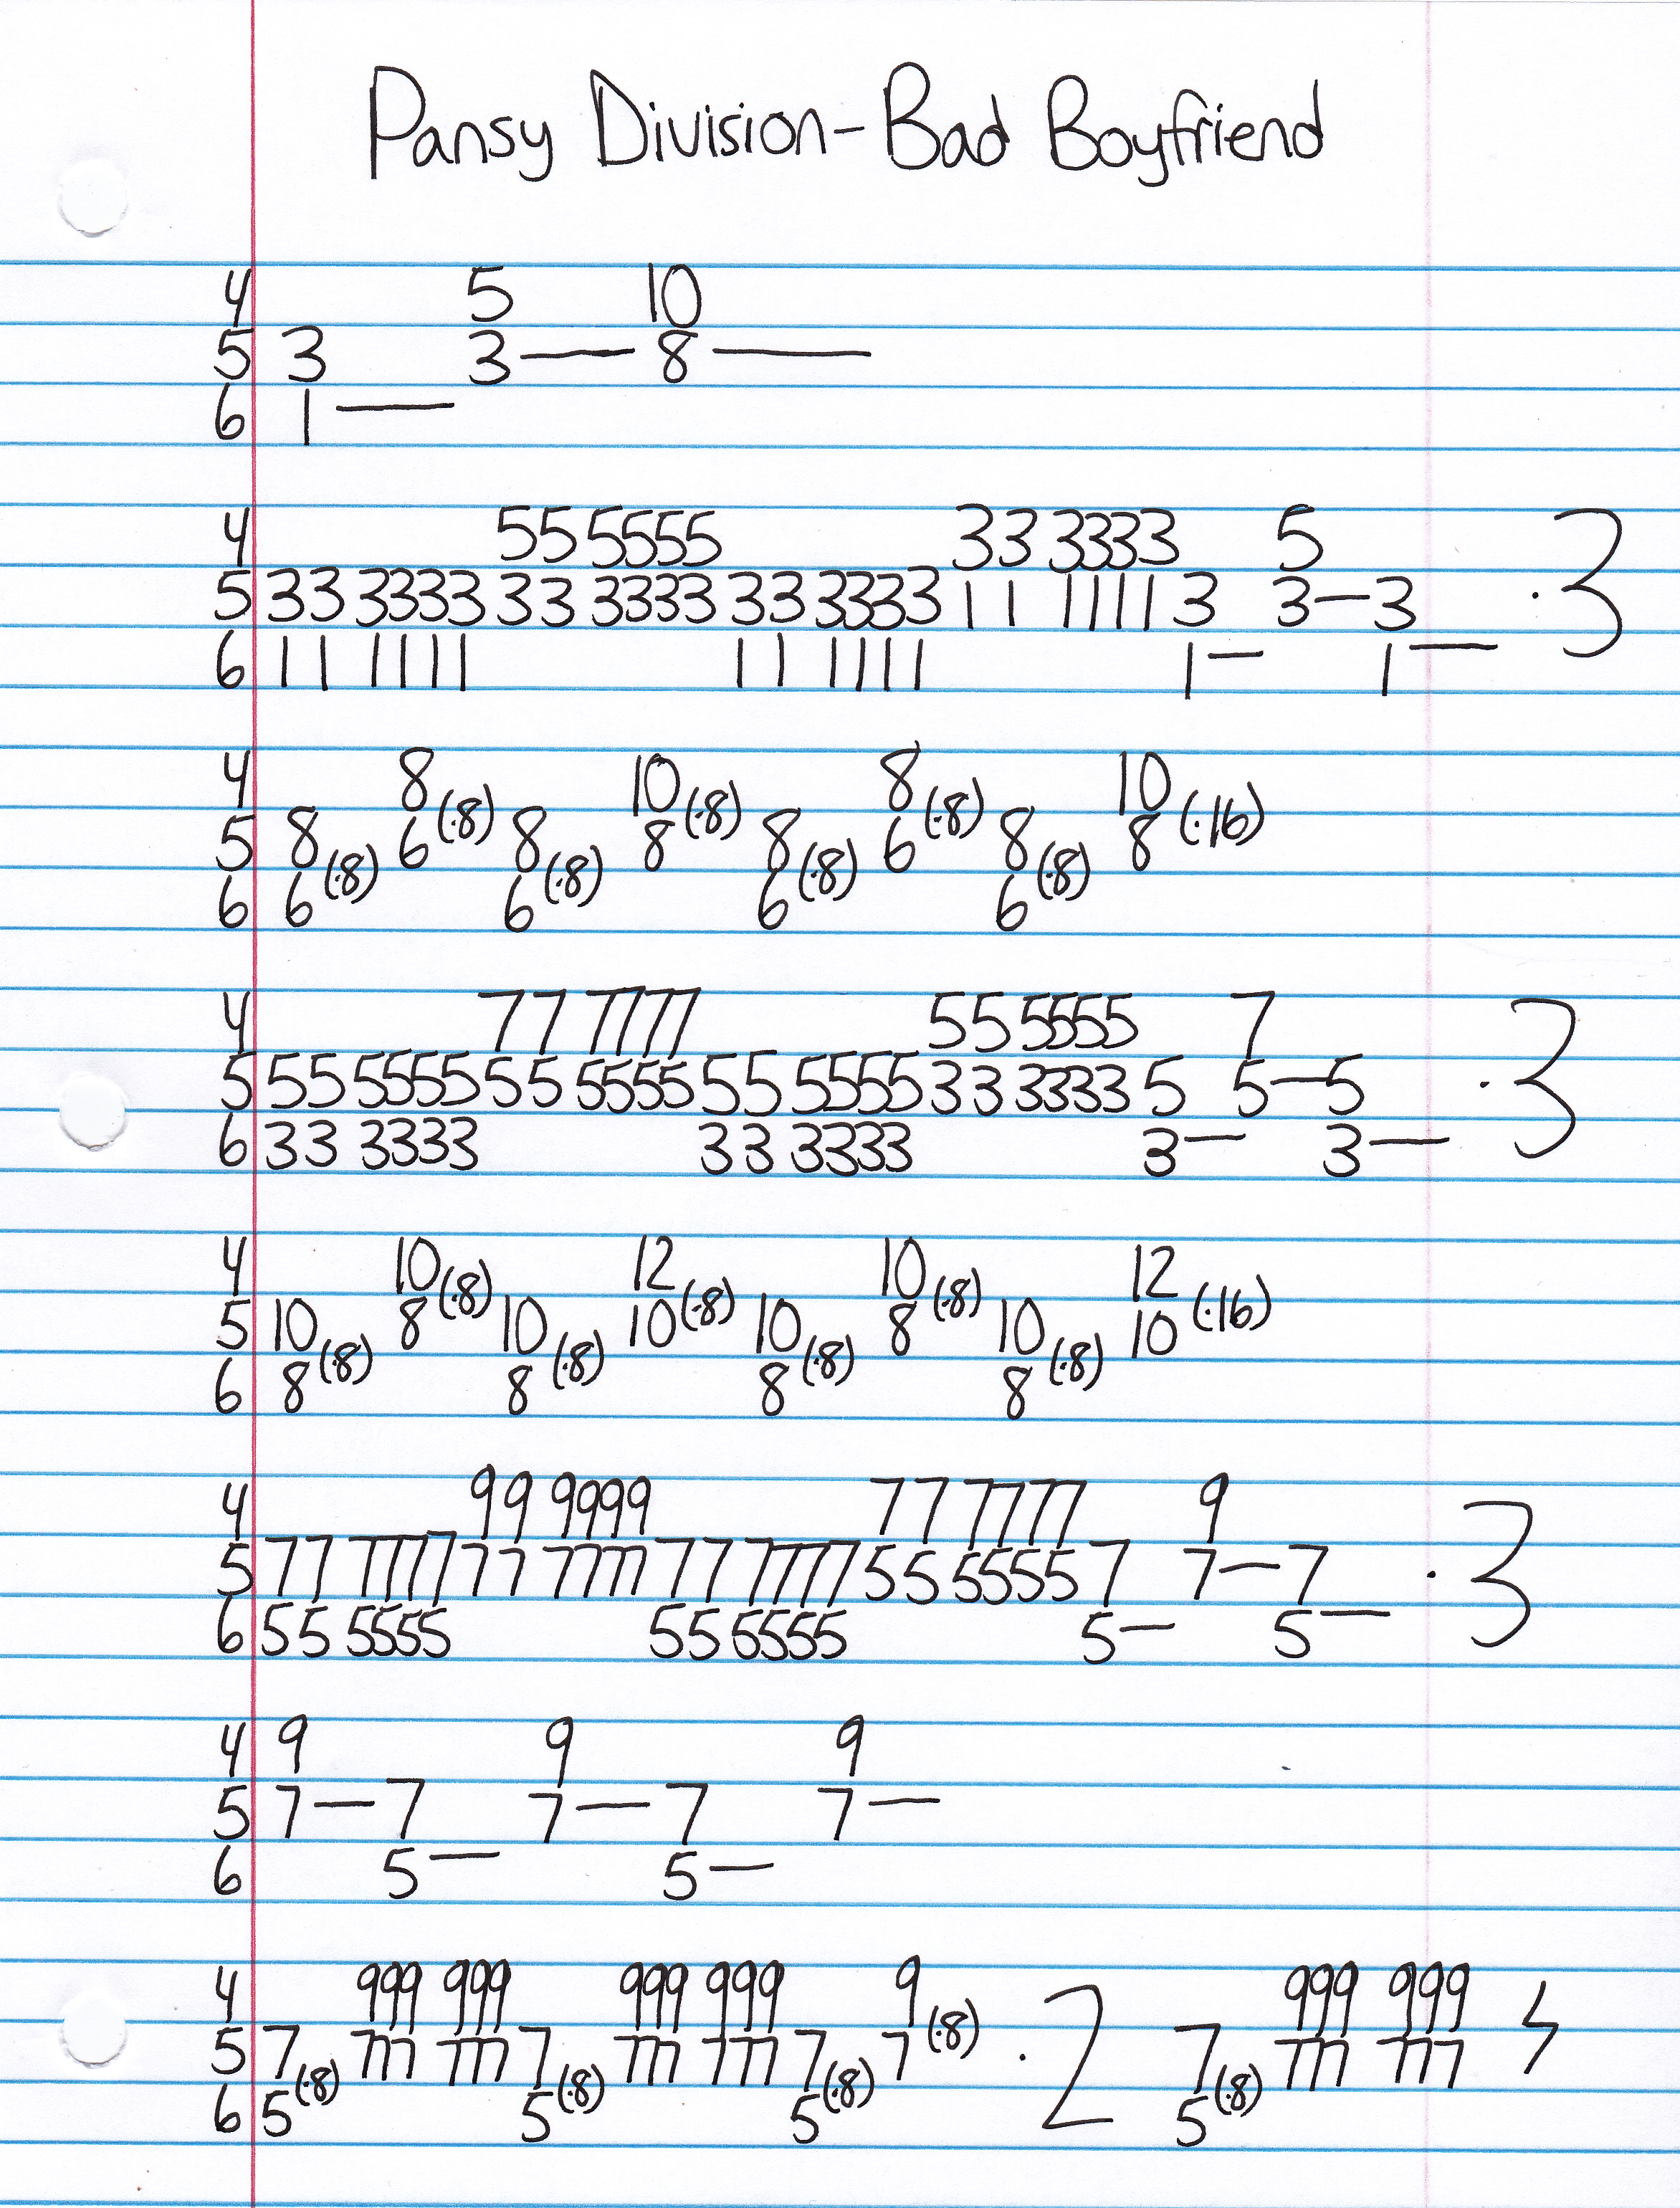 Pansy Division-Bad Boyfriend
4 5 10
5 3 3— 8—
6 1—
4 55 5555 33 3333 5
5 33 3333 33 3333 33 3333 11 1111 3 3—3 ·3
6 11 1111 11 1111 1— 1—
4 8(·8) 10(·8) 8(·8) 10(·16)
5 8 6 8 8 8 6 8 8
6 6(·8) 6(·8) 6(·8) 6(·8)
4 77 7777 55 5555 7
5 55 5555 55 5555 55 5555 33 3333 5 5—5 ·3
6 33 3333 33 3333 3— 3—
4 10(·8) 12(·8) 10(·8) 12(·16)
5 10 8 10 10 10 8 10 10
6 8(·8) 8(·8) 8(·8) 8(·8)
4 99 9999 77 7777 9
5 77 7777 77 7777 77 7777 55 5555 7 7—7 ·3
6 55 5555 55 5555 5— 5—
4 9 9 9
5 7—7 7—7 7—
6 5— 5—
4 999 999 999 999 9(·8) 999 999
5 7 777 777 7 777 777 7 7 ·2 7 777 777
6 5(·8) 5(·8) 5(·8) 5(·8)